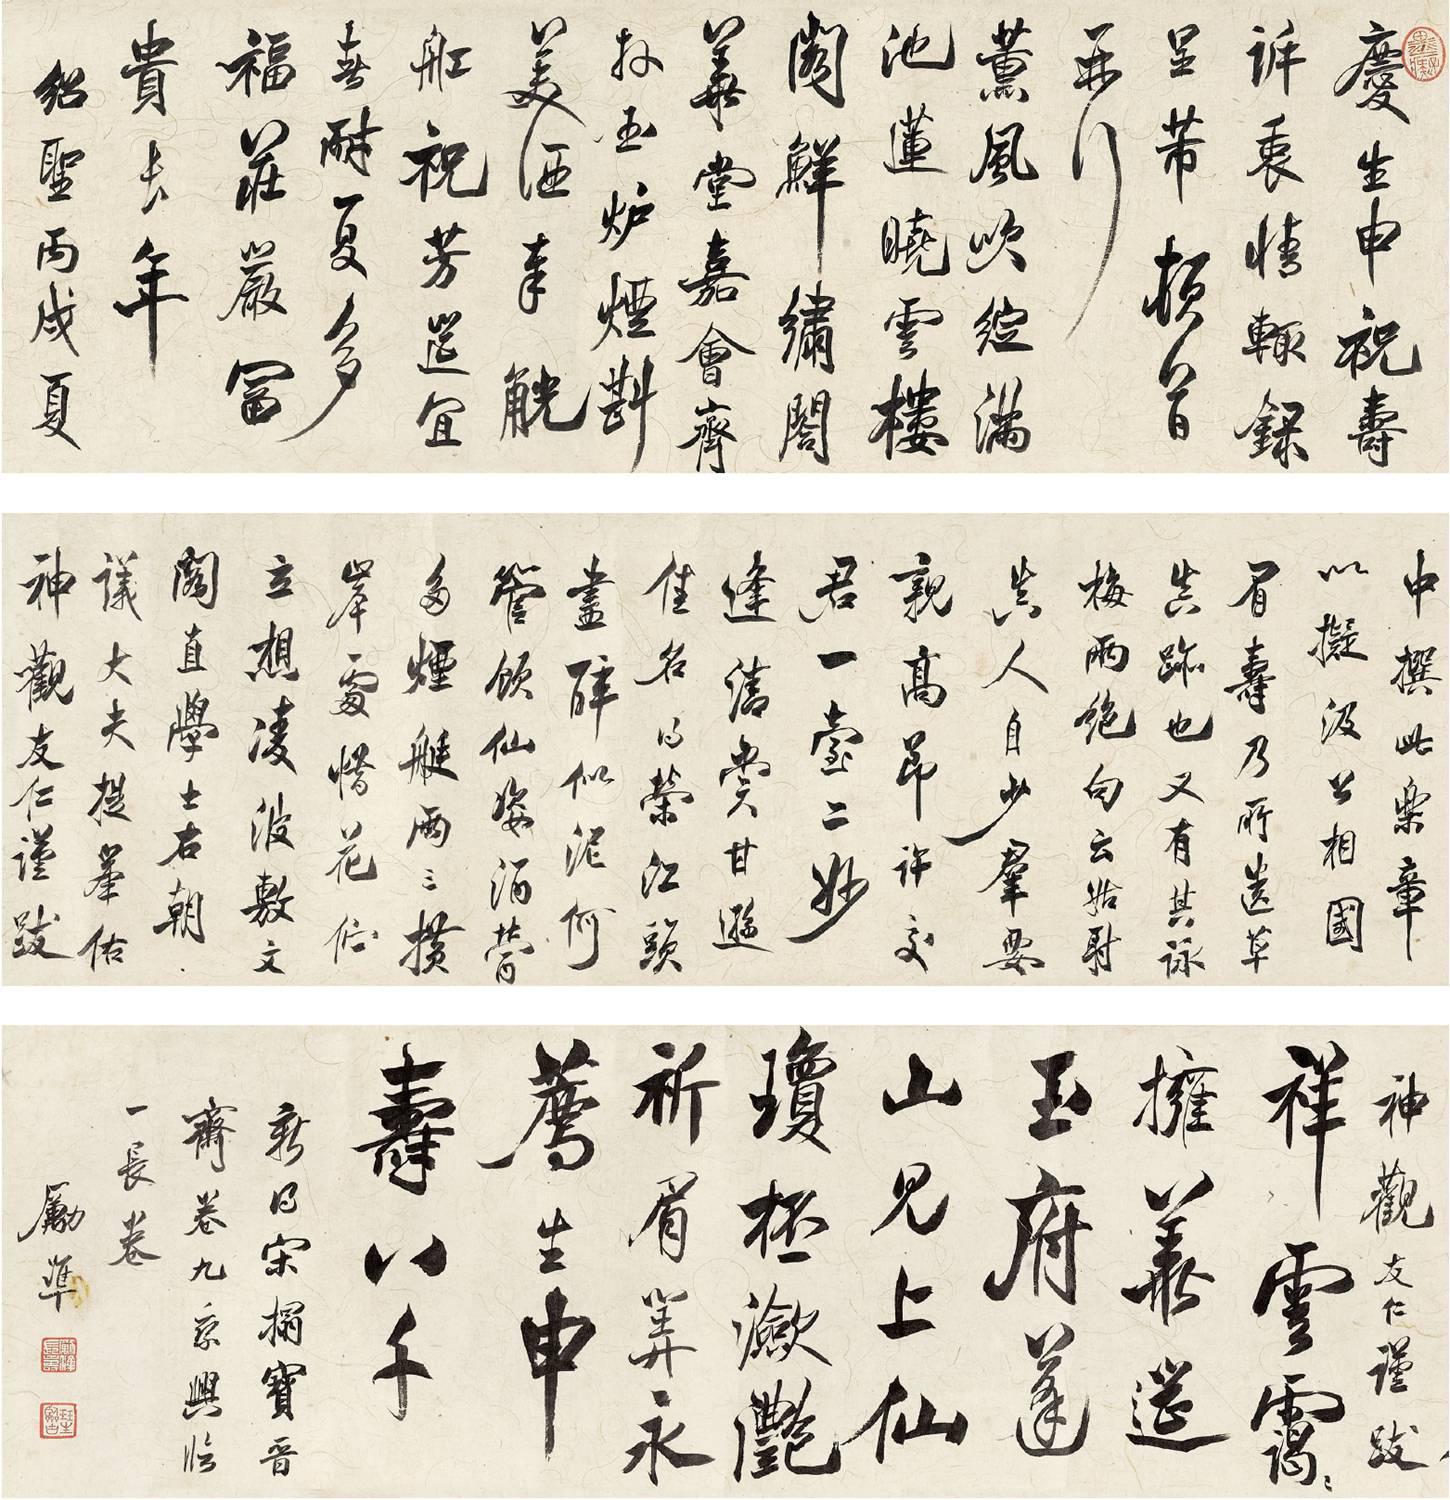 慶生申祝壽
訴衷情輒錄
呈芾頓首
再行
薰風吹綻滿
池蓮曉雲樓
閣鮮繡閤
華堂嘉會齊
拜玉炉煙斟
美酒奉觥
舡祝芳筵宜
春耐夏多
福莊嚴富
貴長年
紹聖丙戌夏
中撰此樂章
以擬汲公相國
眉壽乃所遺草
真跡也又有其詠
梅兩絕句云姑射
真人自少群要
親高節許交
君一臺二妙
逢清賞甘遜
佳名得榮江頭
盡醉似泥何
管飲仙姿酒營
多煙艇兩三橫
岸處惜花倚
立想凌波敷文
閣直學士右朝
議大夫提舉佑
神觀友仁謹跋
神觀友仁謹跋
祥雲靄〻
擁華筵
玉府蓬
山見上仙
瓊杯瀲灩
祈眉算永
薦生申
壽八千
新得宋搨寶晉
齋卷九乘興臨
一長卷
勵準